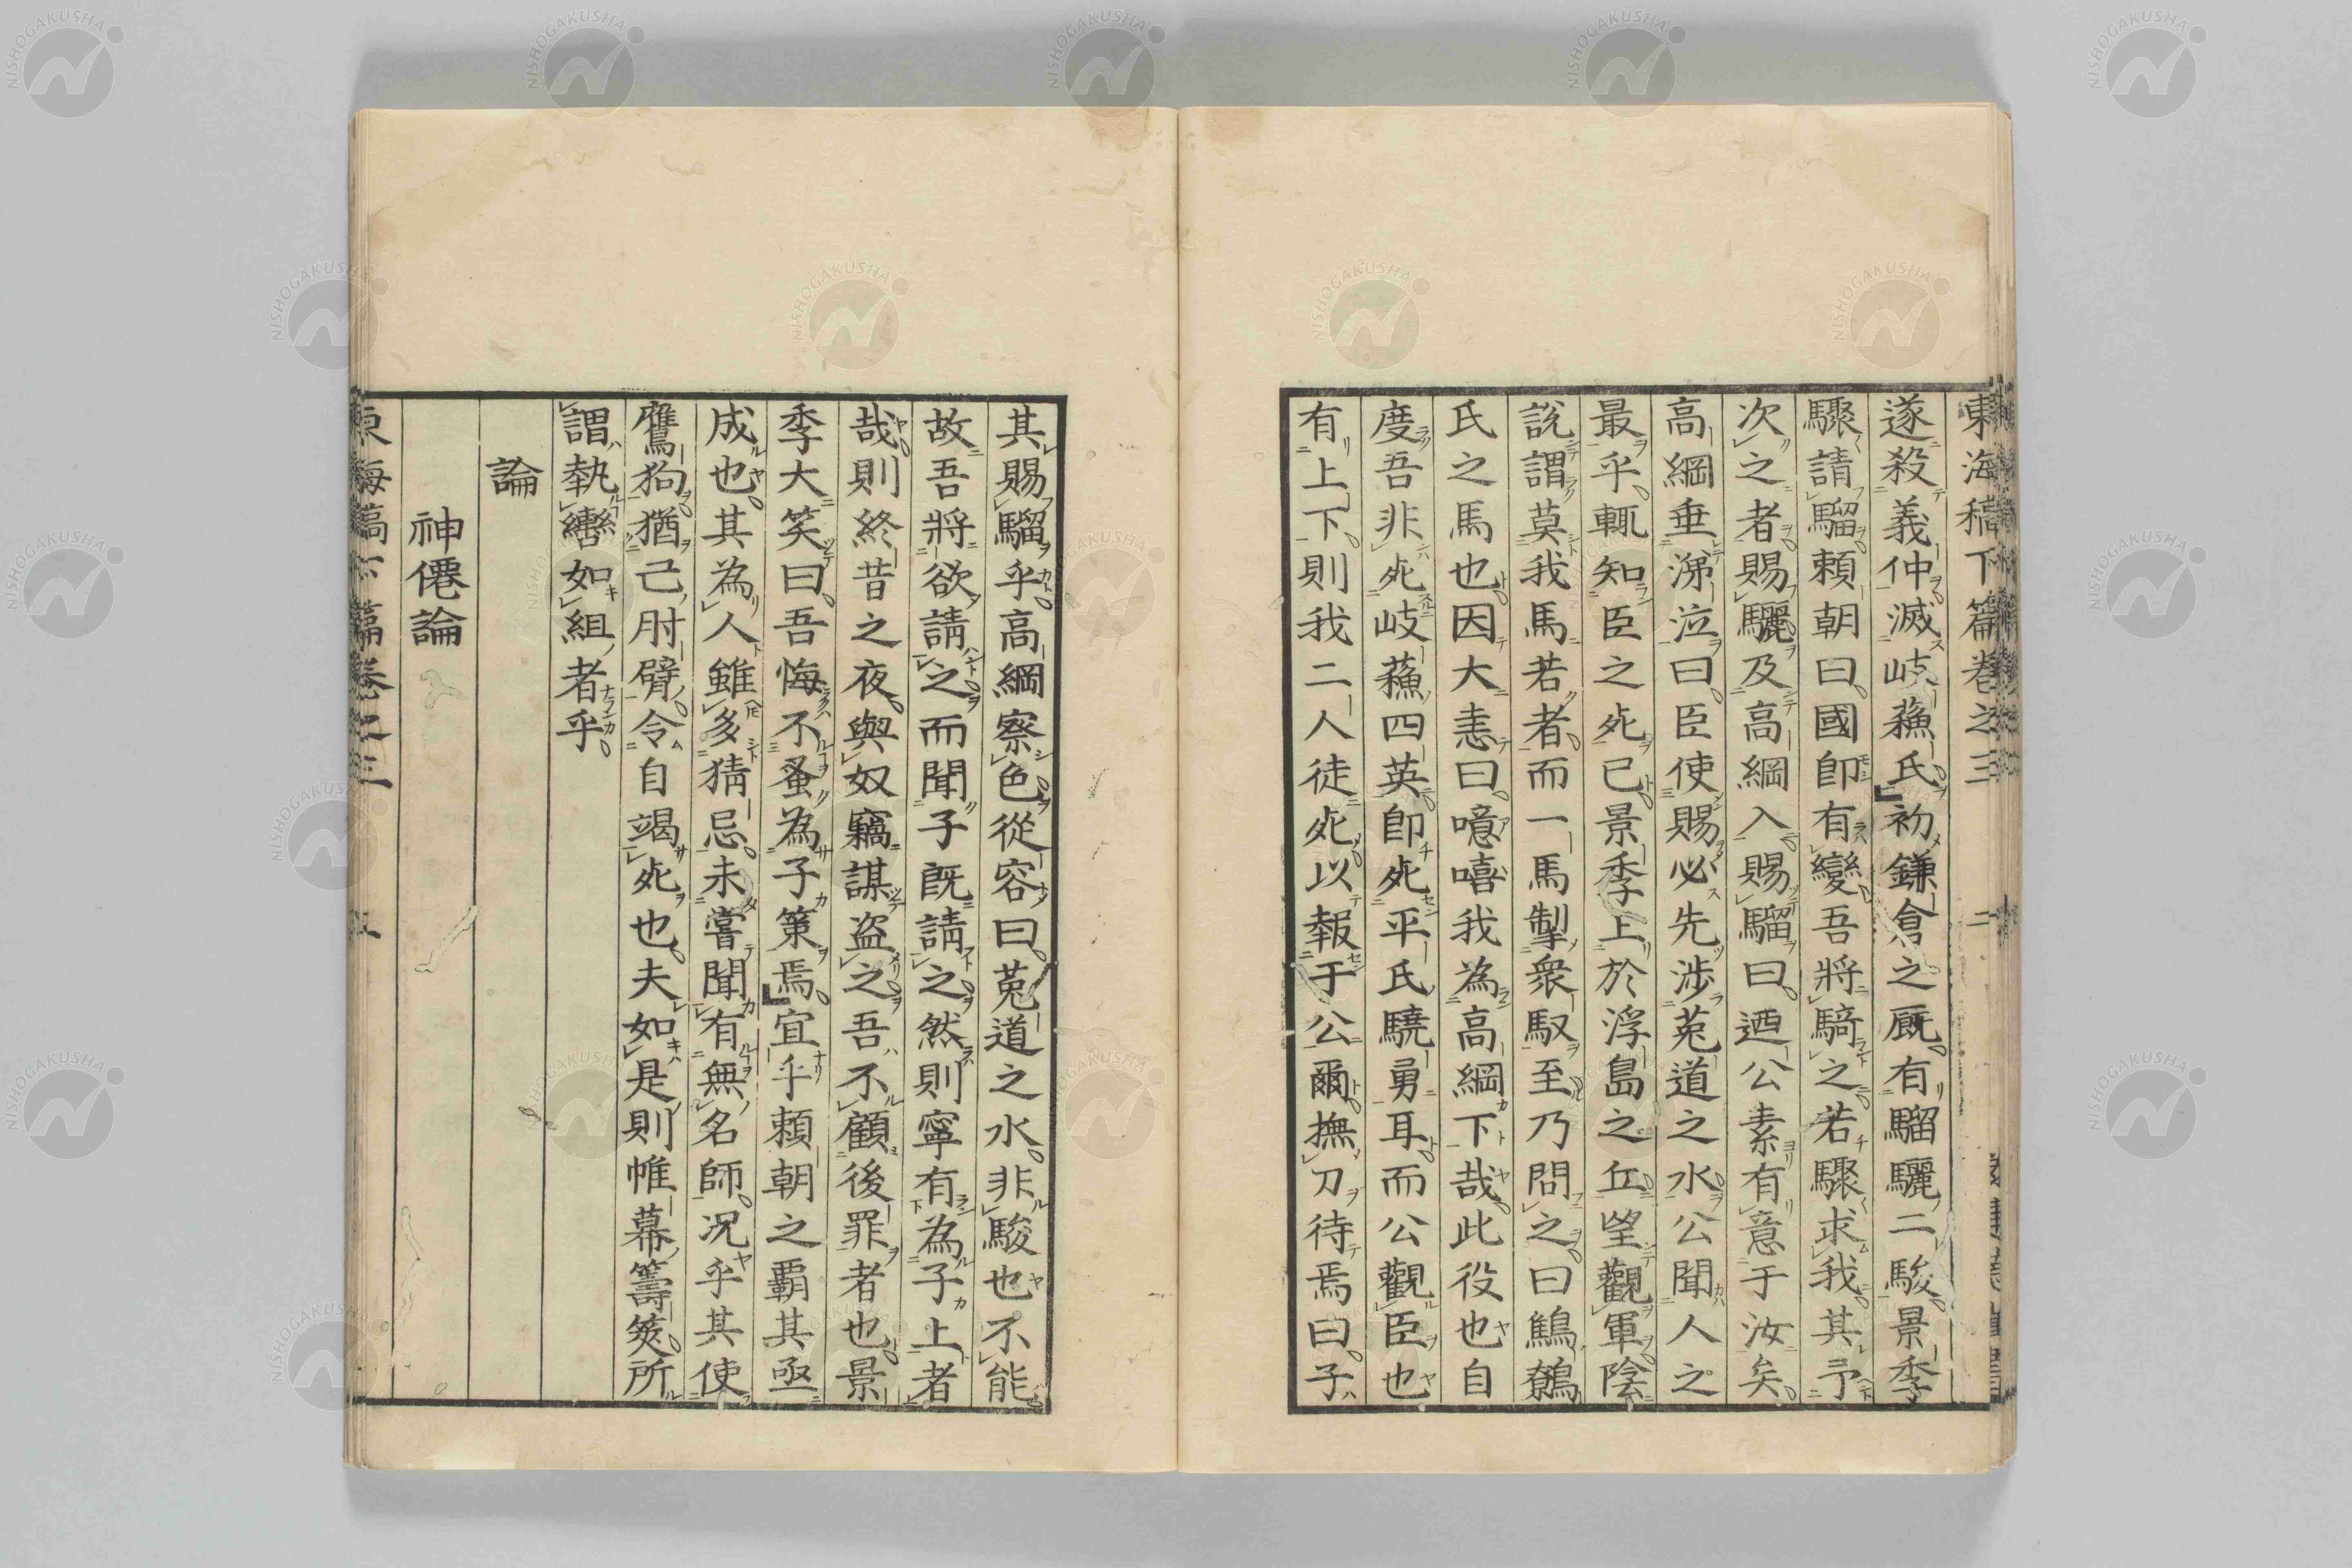 東海稿下篇卷之三 二
遂殺義仲滅岐蘓氏初鎌倉之厩有騮驪二駿景季
驟請騮頼朝曰國卽有變吾將騎之若驟求我其予
次之者賜驪及高綱入賜騮曰迺公素有意于汝矣
高綱垂涕泣曰臣使賜必先涉菟道之水公聞人之
最乎輒知臣之死已景季上於浮島之丘望觀軍陰
說謂莫我馬若者而一馬掣衆馭至乃問之曰鷦鷯
氏之馬也因大恚曰噫嘻我為高綱下哉此役也自
度吾非死岐蘓四英卽死平氏驍勇耳而公觀臣也
有上下則我二人徒死以報于公爾撫刀待焉曰子
其賜騮乎高綱察色從容曰菟道之水非駿也不能
故吾將欲請之而聞子旣請之然則寧有為子上者
哉則終昔之夜與奴竊謀盜之吾不顧後罪者也景
季大笑曰吾悔不蚤為子策焉宜乎頼朝之覇其亟
成也其為人雖多猜忌未嘗聞有無名師況乎其使
鷹狗猶己肘臂令自竭死也夫如是則帷幕籌筴所
謂執轡如組者乎
論
神僊論
東海稿下篇卷之三
NISHOGAKUSHA